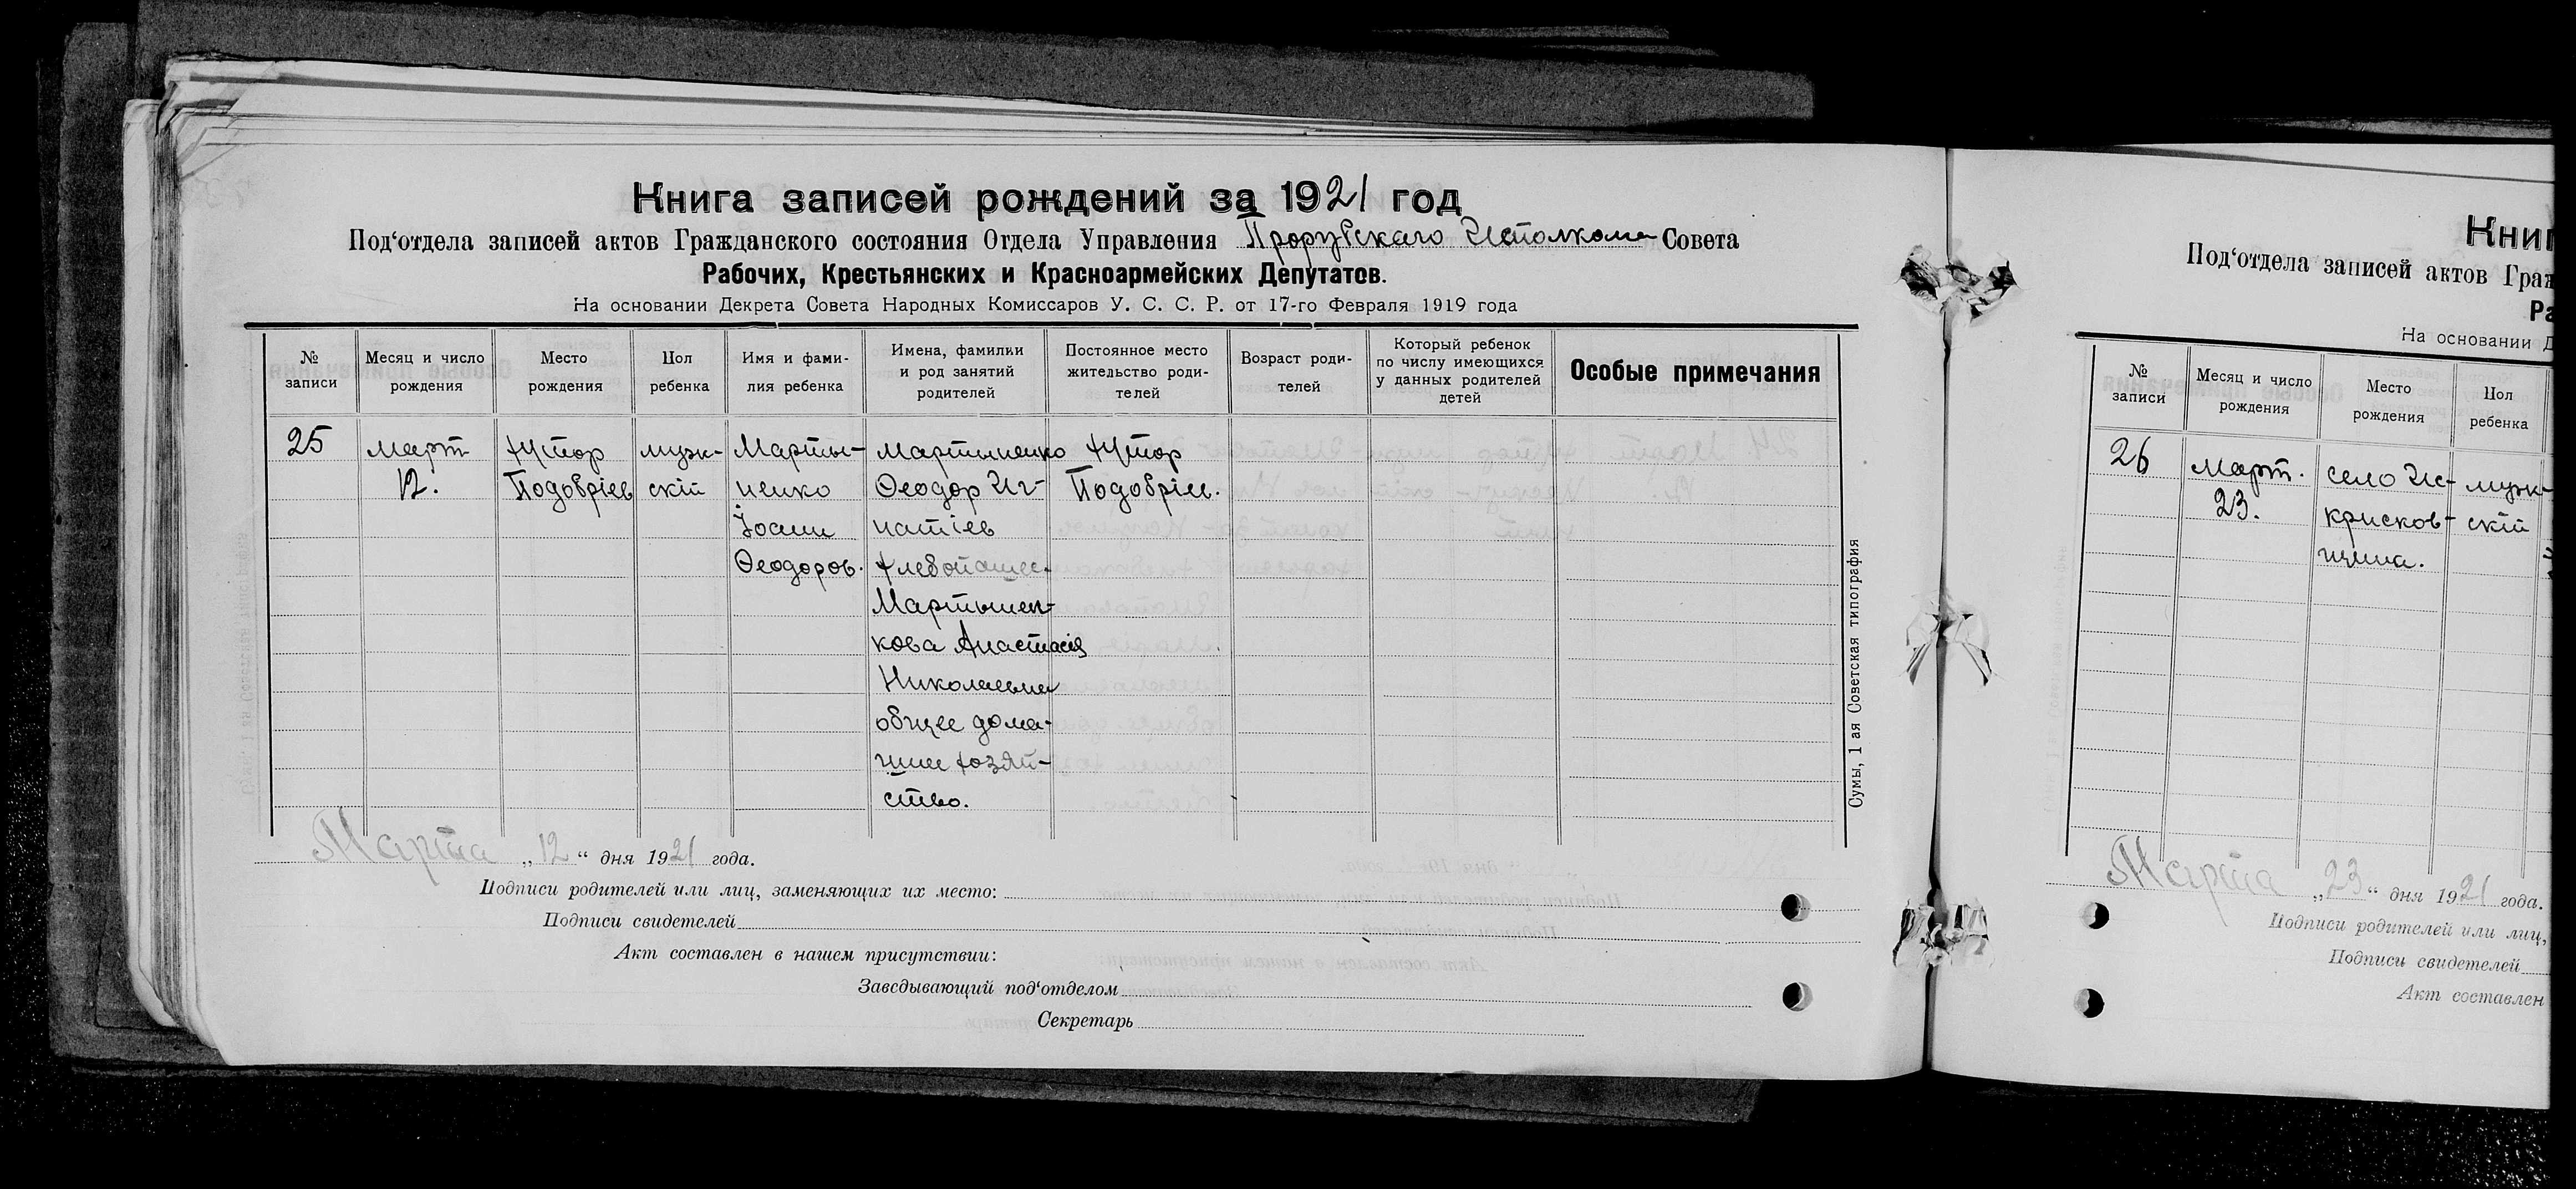 Книга записей рождений за 1921 год
Под‘отдела записей актов Гражданского состояния Отдела Управления Прорубскаго Исполкома Совета
Рабочих, Крестьянских и Красноармейских Депутатов.
На основании Декрета Совета Народных Комиссаров У. С. С. Р. от 17-го Февраля 1919 года
№ записи
Месяц и число рождения
Место рождения
Пол ребенка
Имя и фами-
лия ребенка
Имена, фамилии
и род занятий
родителей
Постоянное место
жительство роди-
телей
Возраст роди-
телей
Который ребенок
по числу имеющихся
у данных родителей
детей
Особые примечания
25
Март
12.
Хутор
муж-
скій
Марты-
ненко
Іоанн
Феодоров.
Мартыненко
Феодор Иг-
натіев
хлебопашес.
Мартынен-
кова Анастасія
Николаевна
общее дома-
шнее хозяй-
ство.
Хутор
Марта „12“ дня 1921 года.
Подписи родителей или лиц, заменяющих их место:
Подписи свидетелей
Акт составлен в нашем присутствии:
Заведывающий под‘отделом
Секретарь
Сумы, 1 ая Советская типография
Книг
Под‘отдела записей актов Граж
Ра
На основании Д
№ записи
Месяц и число
рождения
Место
рождения
Пол
ребенка
26
Март.
23.
село Ис-
крисков-
щина.
муж-
скій
Марта „23“ дня 1921 года.
Подписи родителей или лиц,
Подписи свидетелей
Акт составлен